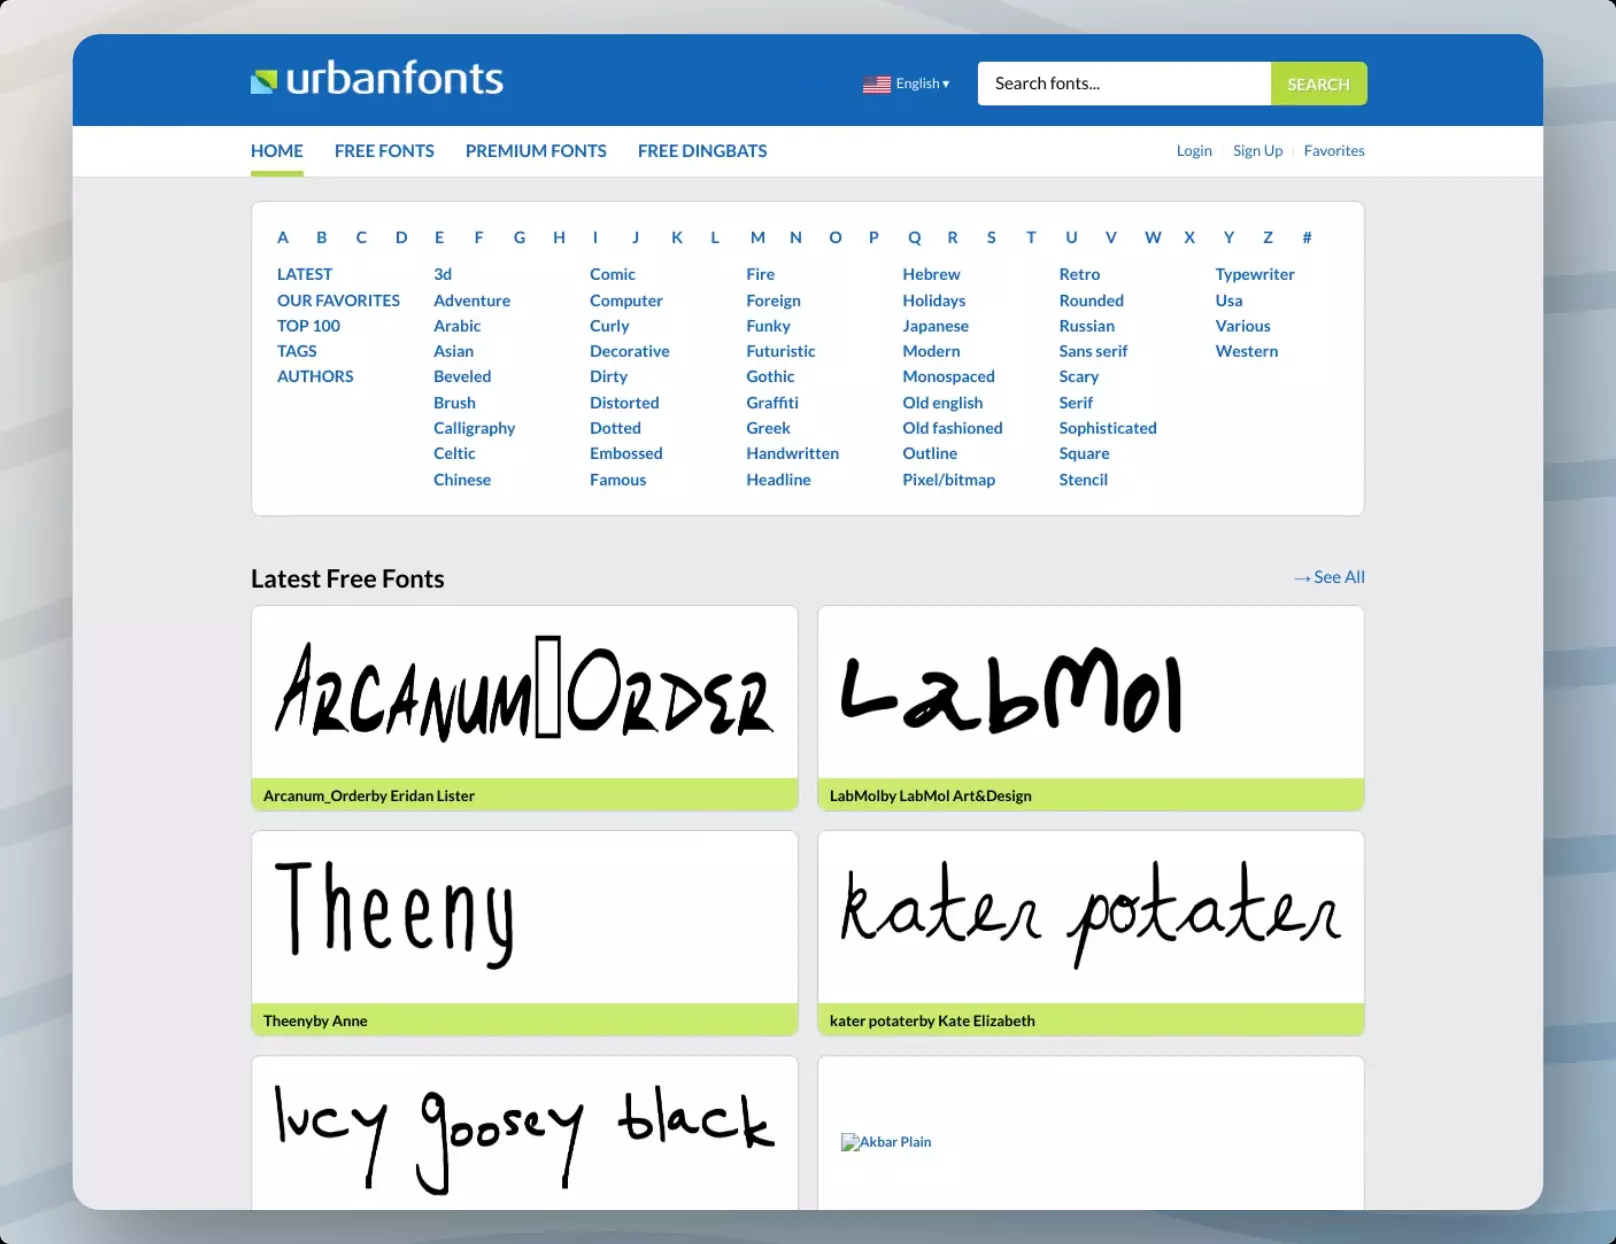 urbanfonts
English ▾
Search fonts...
SEARCH
HOME FREE FONTS PREMIUM FONTS FREE DINGBATS
Login Sign Up Favorites
A B C D E F G H I J K L M N O P Q R S T U V W X Y Z #
LATEST 3d Comic Fire Hebrew Retro Typewriter
OUR FAVORITES Adventure Computer Foreign Holidays Rounded Usa
TOP 100 Arabic Curly Funky Japanese Russian Various
TAGS Asian Decorative Futuristic Modern Sans serif Western
AUTHORS Beveled Dirty Gothic Monospaced Scary
Brush Distorted Graffiti Old english Serif
Calligraphy Dotted Greek Old fashioned Sophisticated
Celtic Embossed Handwritten Outline Square
Chinese Famous Headline Pixel/bitmap Stencil
Latest Free Fonts
→ See All
Arcanum▯Order
LabMol
Arcanum_Orderby Eridan Lister
LabMolby LabMol Art&Design
Theeny
kater potater
Theenyby Anne
kater potaterby Kate Elizabeth
lucy goosey black
Akbar Plain